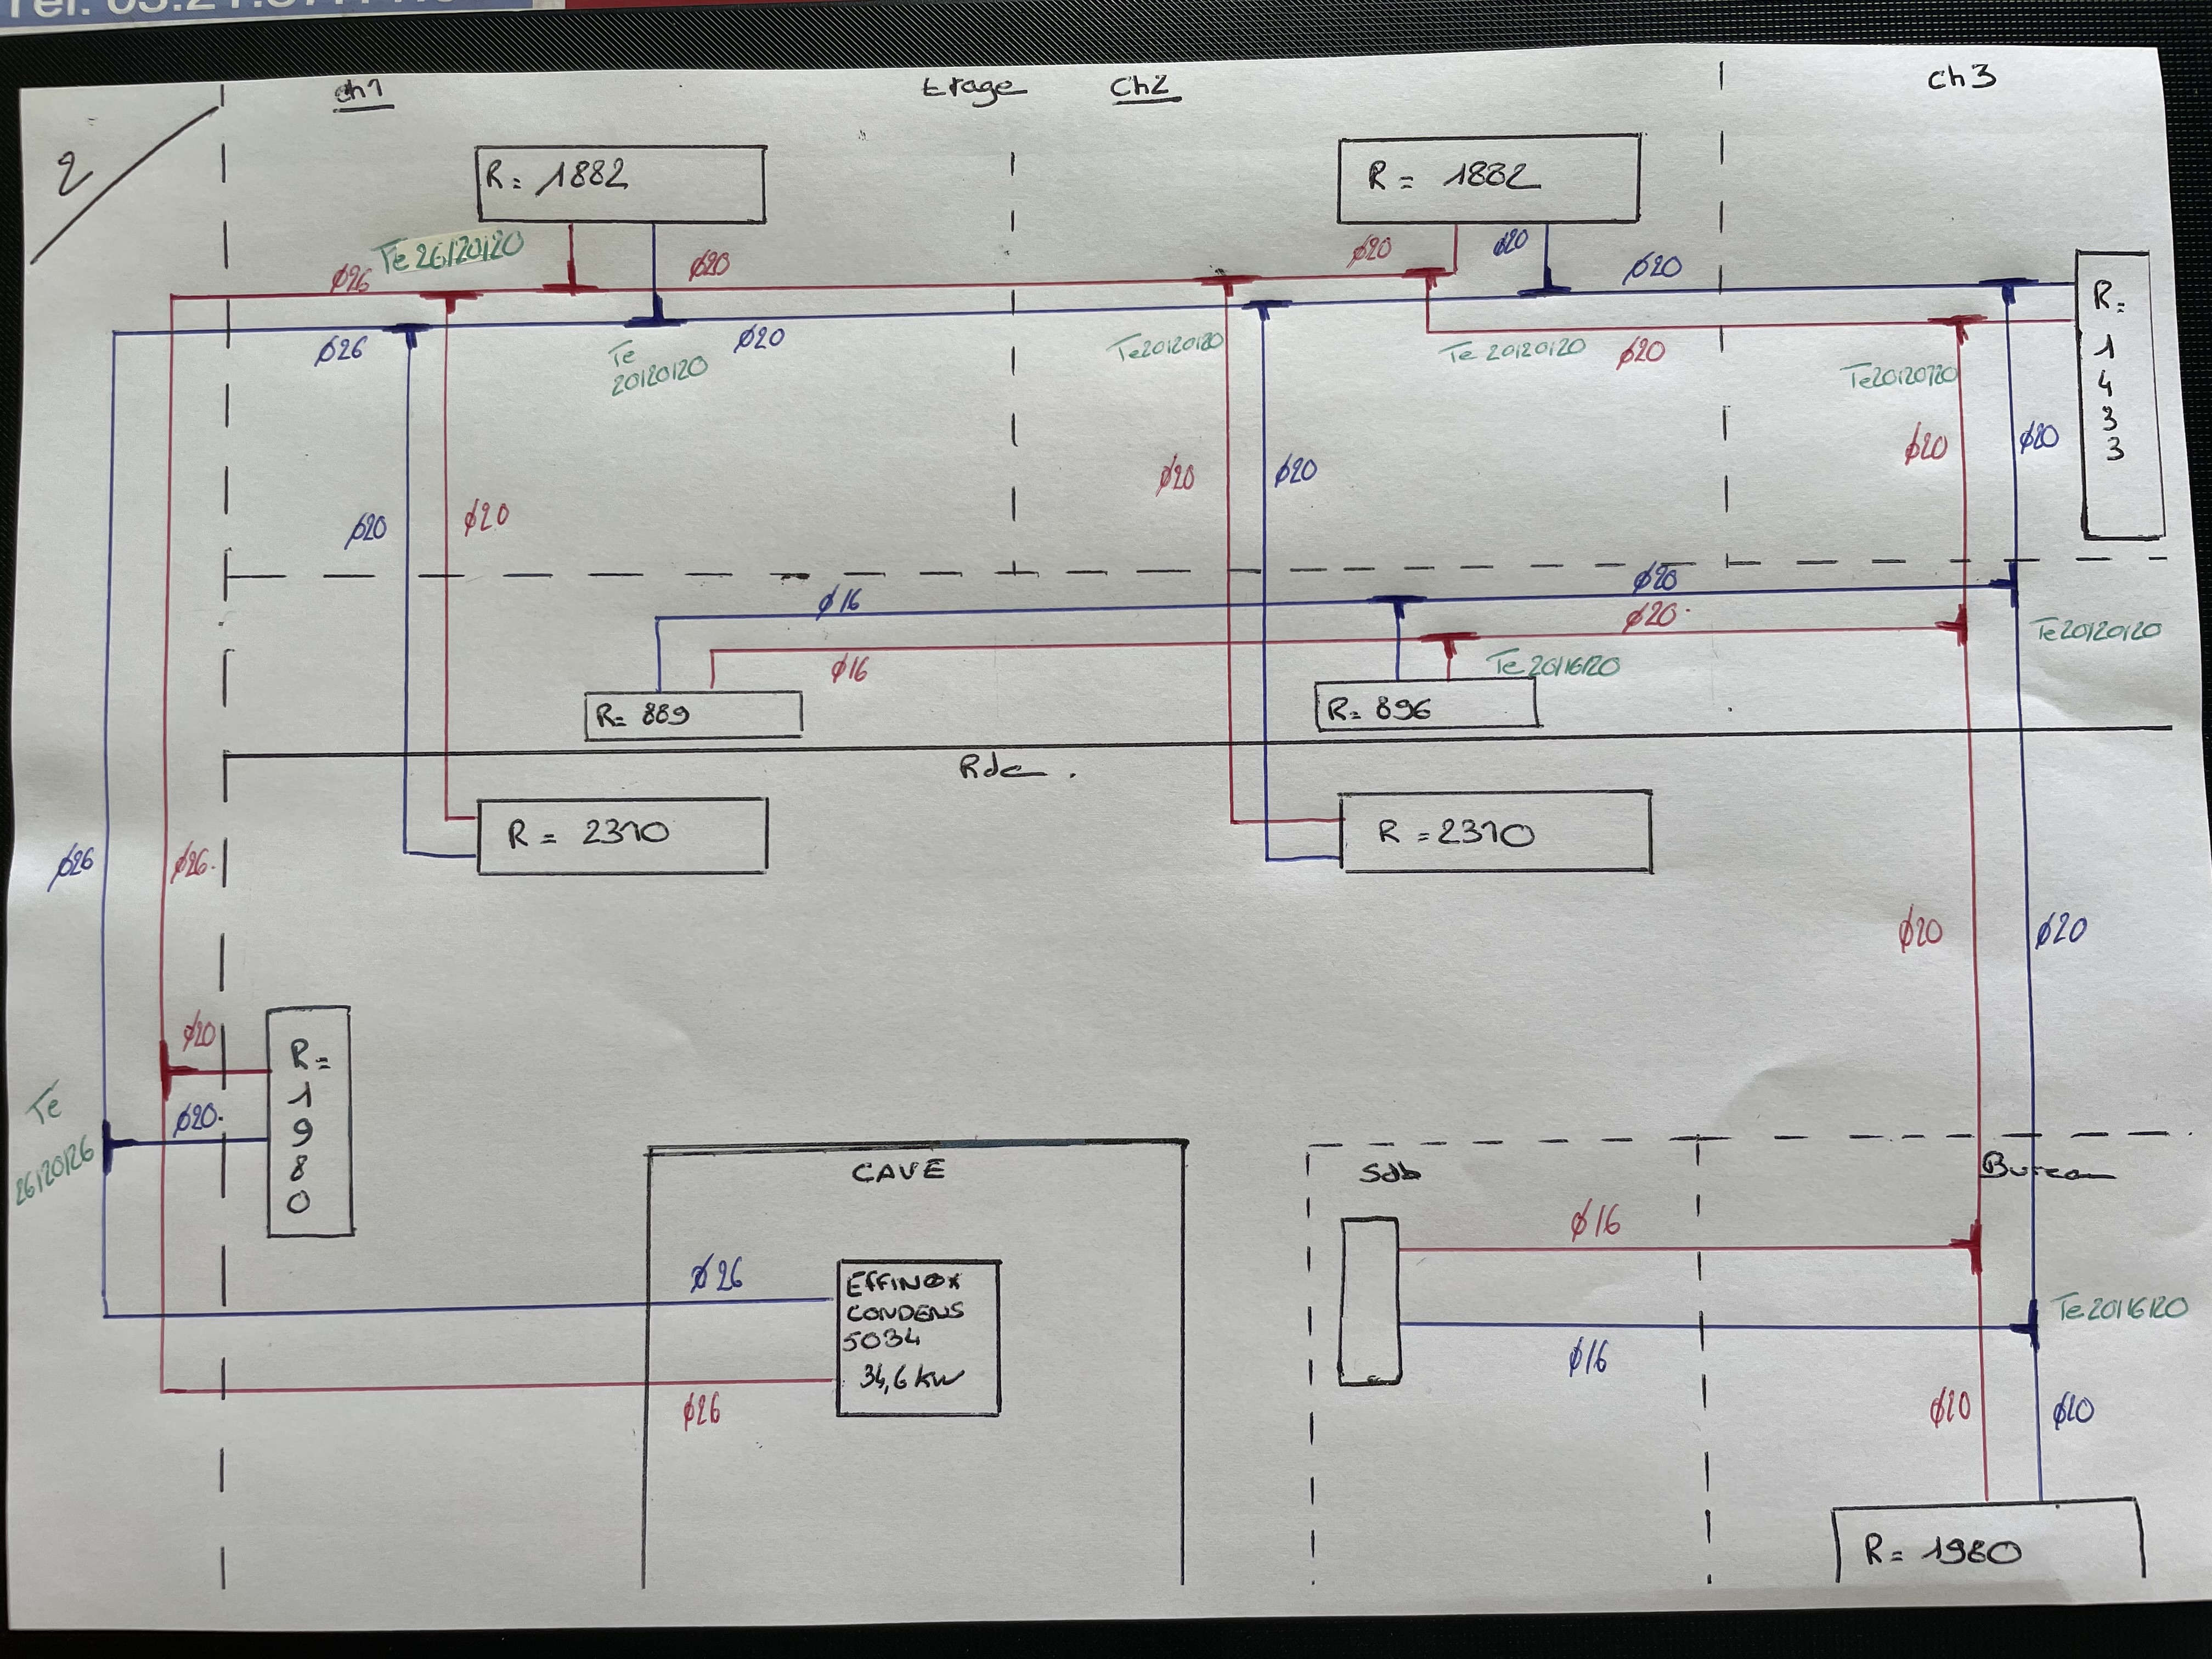 2
ch1
Etage
Ch2
ch3
R= 1882
R= 1882
Te 26/20/20
ø26
ø20
ø20
ø20
ø20
R=
1
4
3
3
ø26
Te
20/20/20
ø20
Te20/20/20
Te 20/20/20
ø20
Te20/20/20
ø20
ø20
ø20
ø20
ø20
ø20
ø16
ø20
ø20
ø16
Te 20/16/20
Te20/20/20
R= 889
R= 896
Rdc.
R = 2310
R = 2310
ø26
ø26.
ø20
ø20
ø20
R=
1
9
8
0
ø20.
Te
26/20/26
CAVE
Sdb
Bureau
ø16
ø26
EFFINOX
CONDENS
5034
34,6 kW
ø26
Te 20/16/20
ø16
ø20
ø20
R= 1980